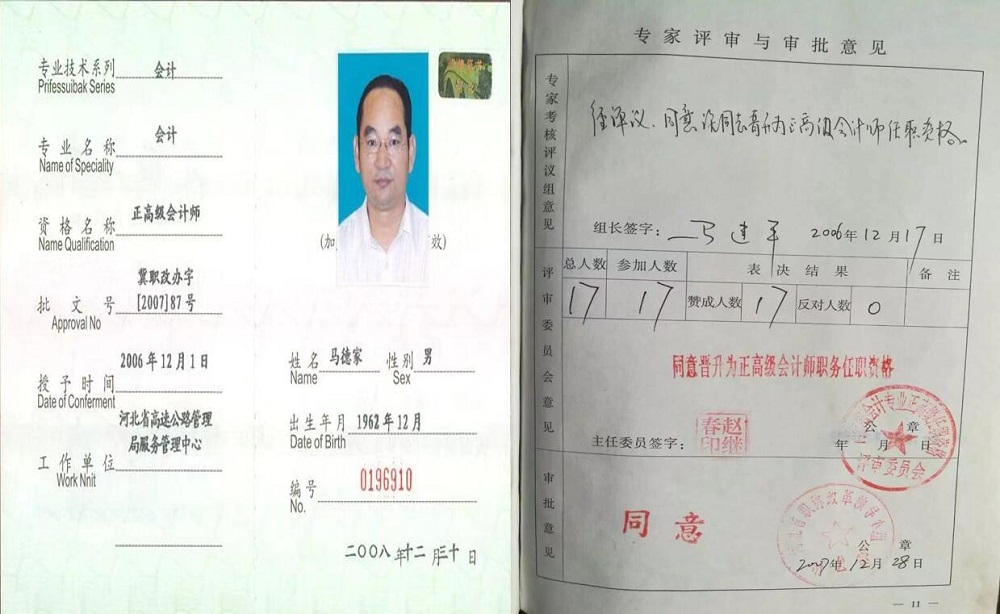 专业技术系列 会计
Prifessuibak Series
专业名称 会计
Name of Speciality
资格名称 正高级会计师
Name Qualification
冀职改办字
批文号 [2007]87号
Approval No
授予时间 2006年12月1日
Date of Conferment
河北省高速公路管理
局服务管理中心
工作单位
Work Nnit
(加 效)
姓名 马德家 性别 男
Name Sex
出生年月 1962年12月
Date of Birth
编号 0196910
No.
二〇〇八年十二月三十日
专家评审与审批意见
专家考核评议组意见
经评议、同意该同志晋升为正高级会计师任职资格。
组长签字: 马建平 2006年12月17日
评审委员会意见
总人数 参加人数 表决结果 备注
17 17 赞成人数 17 反对人数 0
同意晋升为正高级会计师职务任职资格
主任委员签字: 赵继春印 公章
年 月 日
评审委员会
审批意见
同意
公章
2007年12月28日
— 11 —